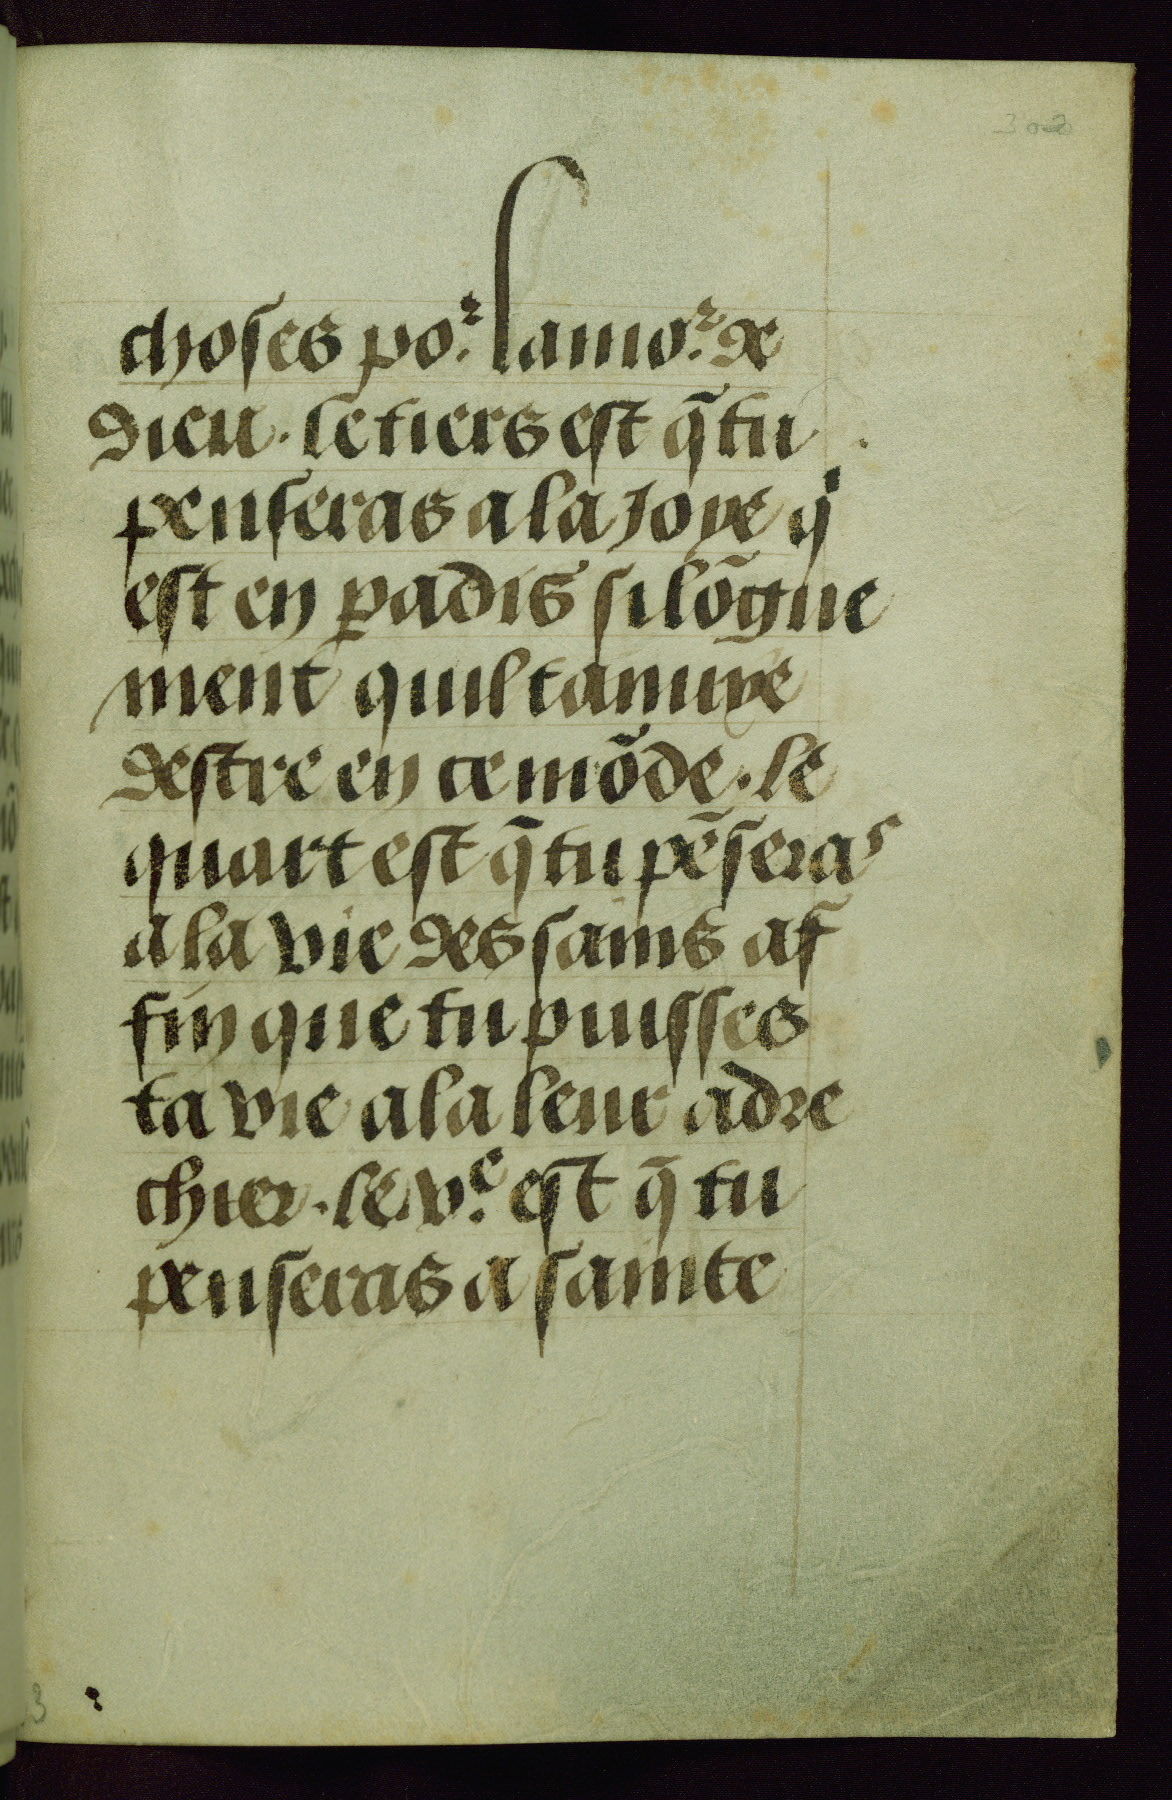 302
choses po.ꝛ lamo.ꝛ de
dieu . le tiers est q̃ tu
penseras a la joye qͥ
est en ꝑadis si lõgue
ment quil tanuye
destre en ce mõde . le
quart est q̃ tu pẽseras
a la vie des sains af
fin que tu puisses
ta vie a la leur adre
chier . le v.ͤ est q̃ tu
penseras a sainte
3